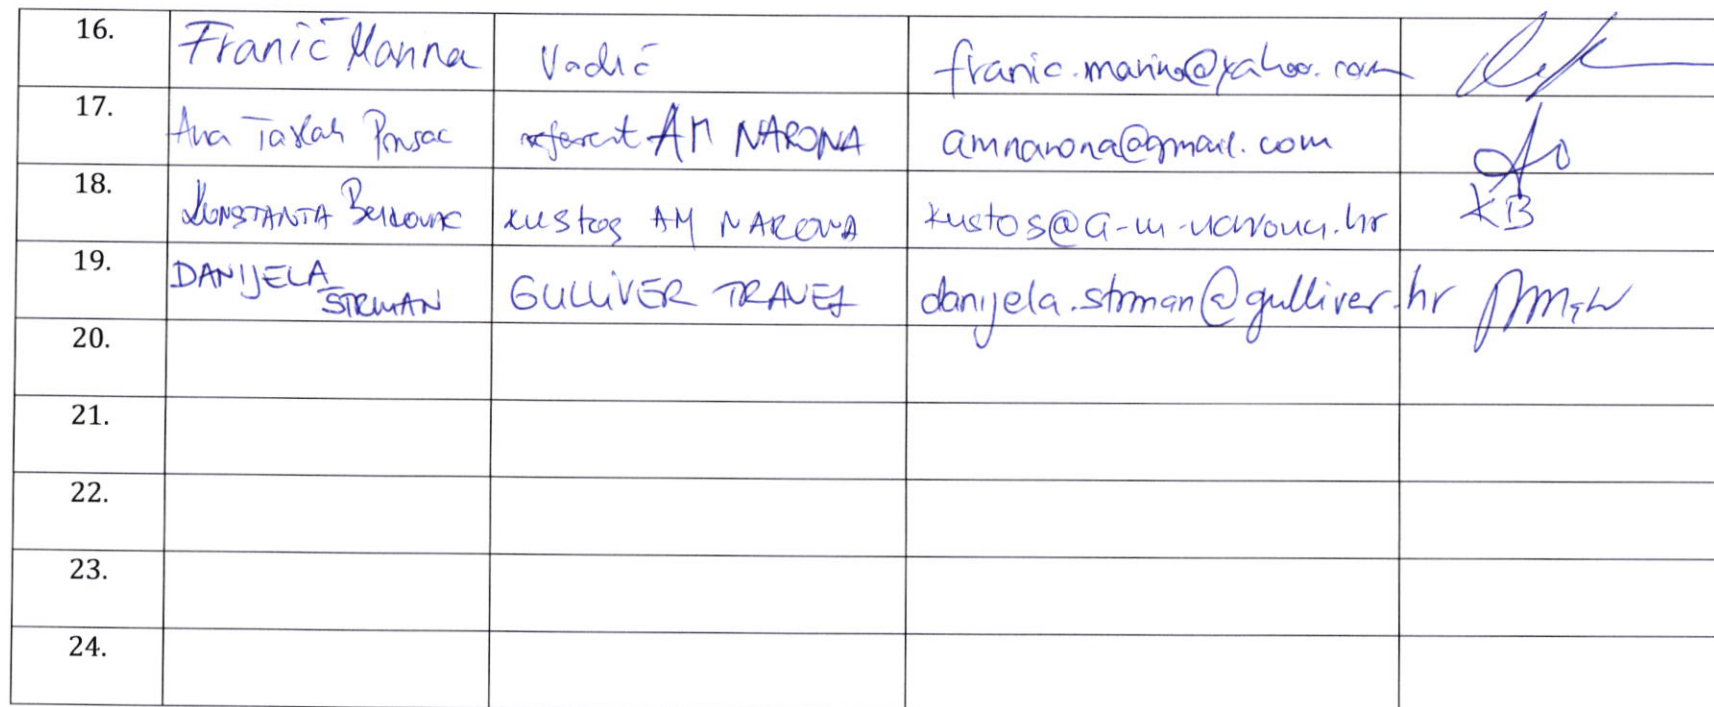 16. Franić Marina Vodič franic.marina@yahoo.com
17. Ana referent AM NARONA amnarona@gmail.com
18. KONSTANTA kustos AM NARONA kustos@a-m-narona.hr KB
19. DANIJELA ŠTRMAN GULLIVER TRAVEL danijela.strman@gulliver.hr
20.
21.
22.
23.
24.